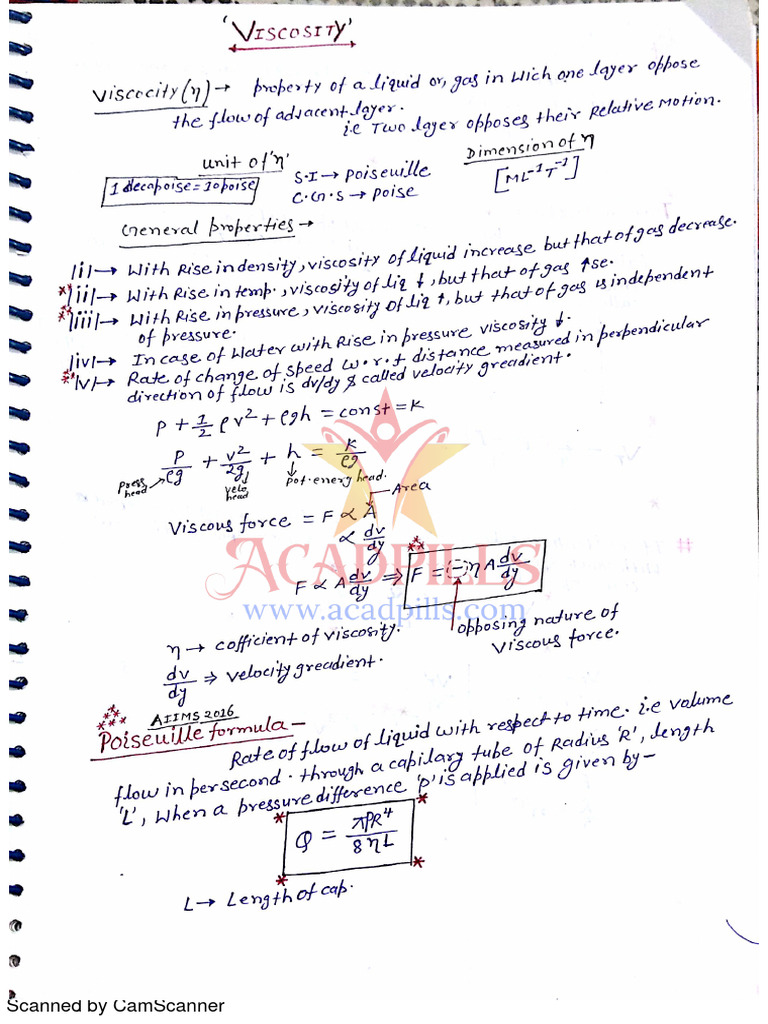 'VISCOSITY'
Viscocity(η)→ property of a liquid or, gas in Wich one layer oppose
the flow of adjacent layer.
i.e Two layer opposes their Relative Motion.
unit of 'η'
Dimension of η
1 decapoise = 10 poise
S.I → Poiseuille
C.G.S → Poise
[ML⁻¹T⁻¹]
General properties →
|i|→ With Rise in density, viscosity of liquid increase but that of gas decrease.
*|ii|→ With Rise in temp., viscosity of liq ↓, but that of gas ↑se.
**|iii|→ With Rise in pressure, viscosity of liq ↑, but that of gas is independent
of pressure.
|iv|→ In case of Water with Rise in pressure viscosity ↓.
**|v|→ Rate of change of speed w.r.t distance measured in perpendicular
direction of flow is dv/dy & called velocity greadient.
P + 1/2 ρv² + ρgh = const = K
P/ρg + v²/2g + h = K/ρg
press head
velo head
pot. energy head.
Area
Viscous force = F ∝ A
∝ dv/dy
ACADPILLS
F ∝ A dv/dy ⇒ F = (-) η A dv/dy
www.acadpills.com
η → cofficient of viscosity.
opposing nature of
Viscous force.
dv/dy ⇒ velocity greadient.
AIIMS 2016
Poiseuille formula –
Rate of flow of liquid with respect to time. i.e volume
flow in per second. through a capilary tube of Radius 'R', length
'L', When a pressure difference 'p' is applied is given by –
Q = πPR⁴/8ηL
L → Length of cap.
Scanned by CamScanner